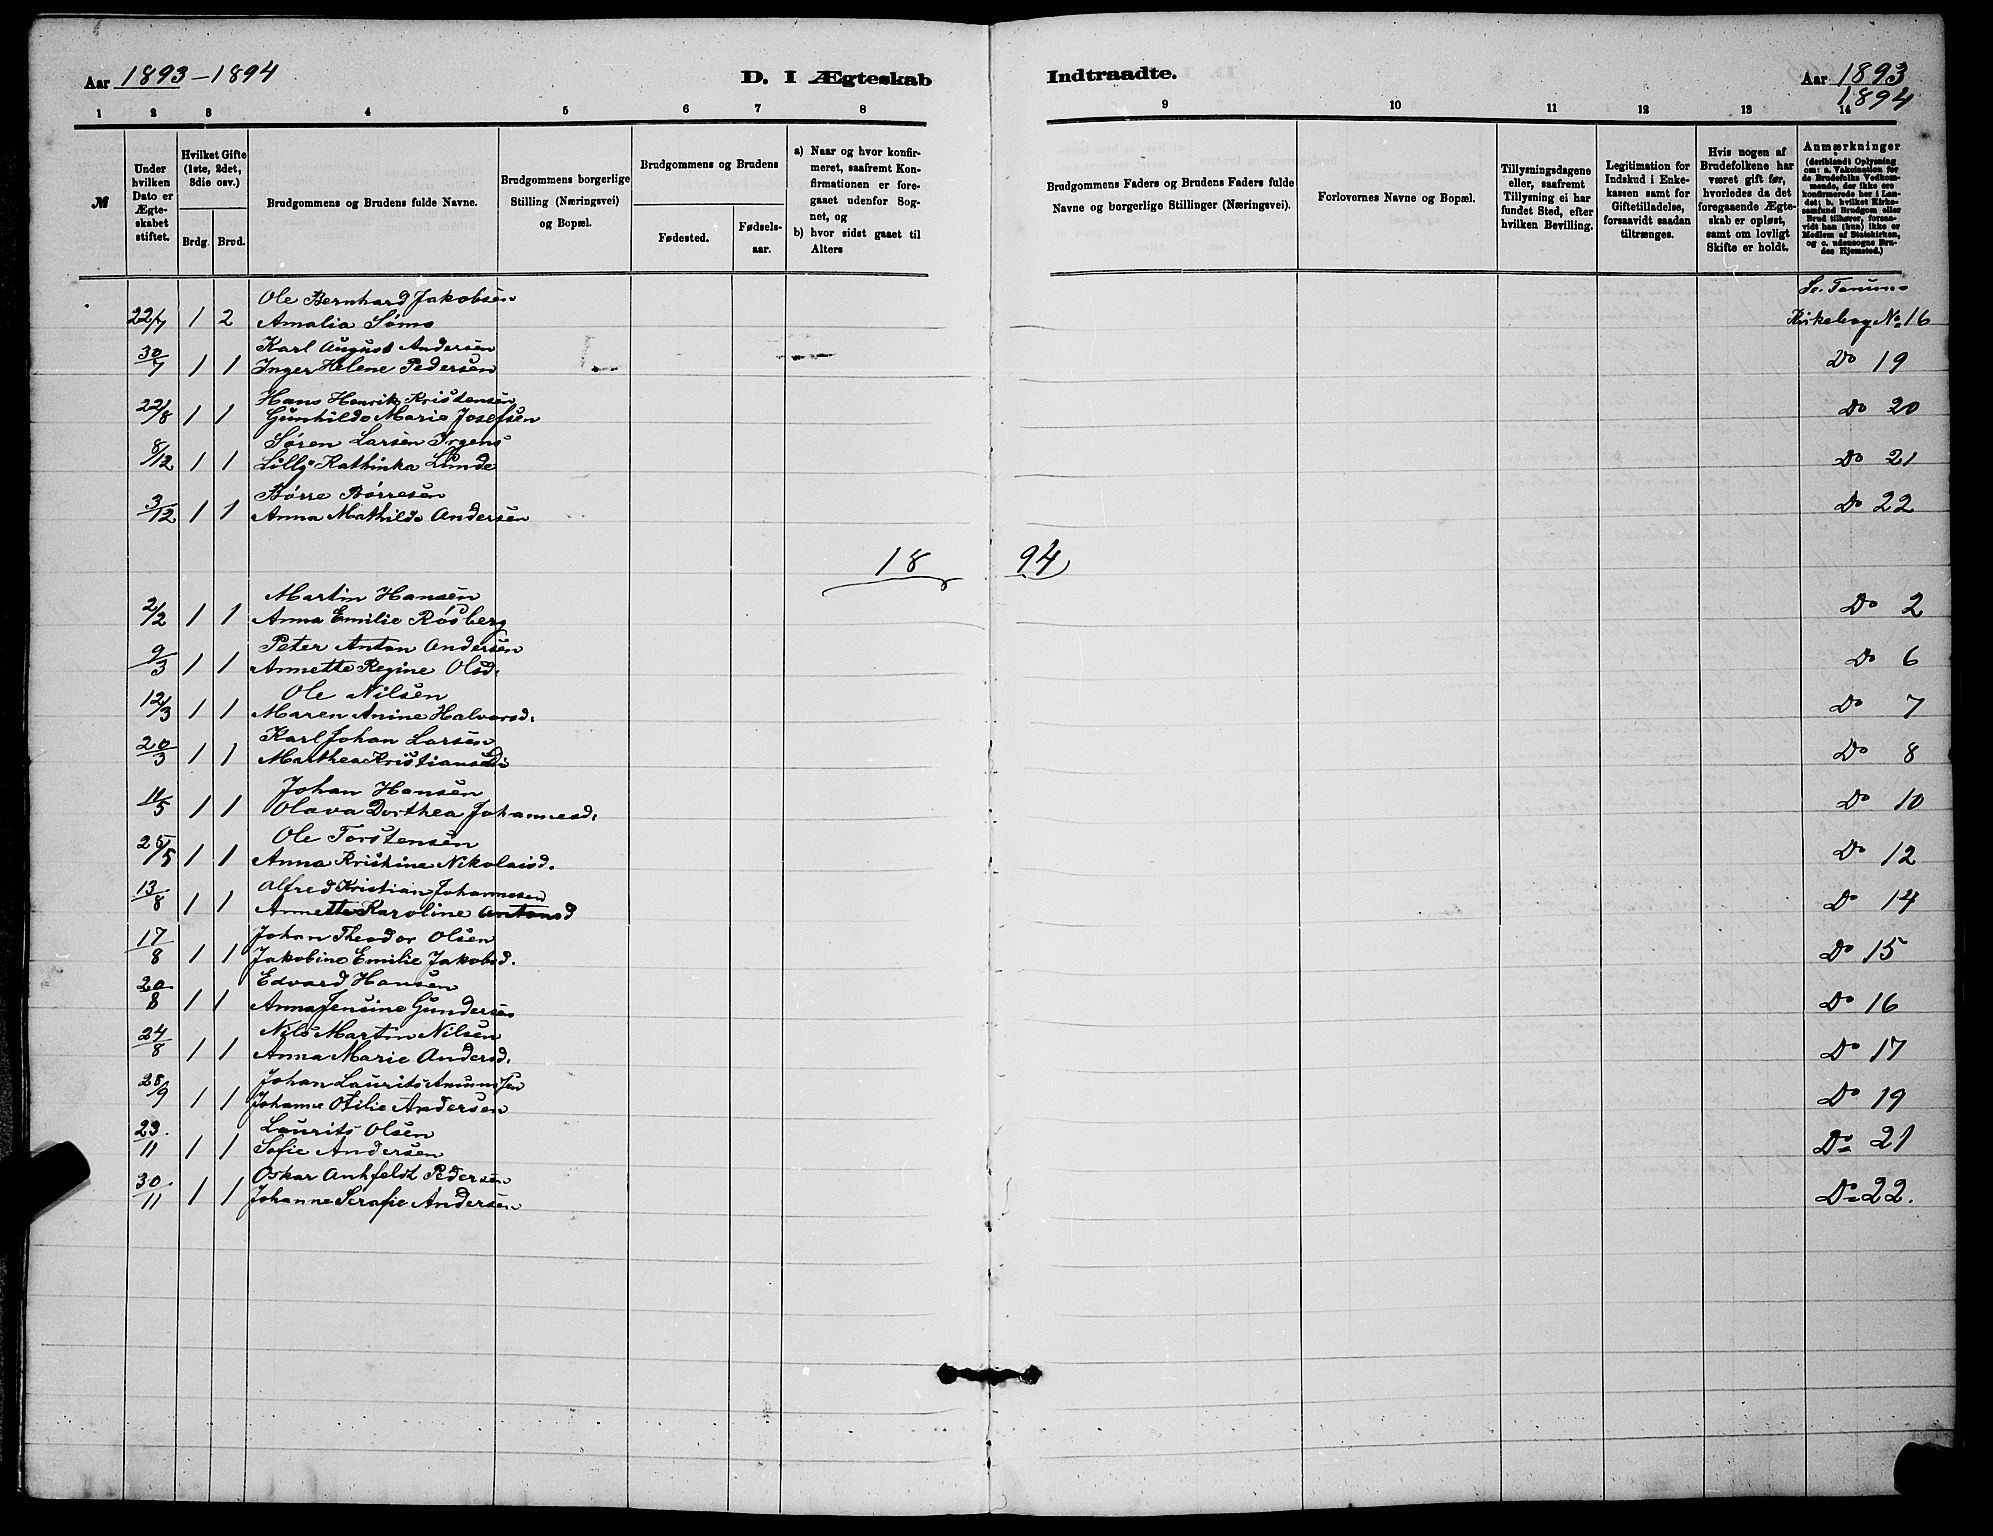 Aar 1893-1894
D. I Ægteskab Indtraadte.
Aar 1893
1894
1 2 3 4 5 6 7 8 9 10 11 12 13 14
№
Under hvilken Dato er Ægteskabet stiftet.
Hvilket Gifte (1ste, 2det, 3die osv.)
Brdg. Brud.
Brudgommens og Brudens fulde Navne.
Brudgommens borgerlige Stilling (Næringsvei) og Bopæl.
Brudgommens og Brudens
Fødested. Fødselsaar.
a) Naar og hvor konfirmeret, saafremt Konfirmationen er foregaaet udenfor Sognet, og
b) hvor sidst gaaet til Alters
Brudgommens Faders og Brudens Faders fulde Navne og borgerlige Stillinger (Næringsvei).
Forlovernes Navne og Bopæl.
Tillysningsdagene eller, saafremt Tillysning ei har fundet Sted, efter hvilken Bevilling.
Legitimation for Indskud i Enkekassen samt for Giftetilladelse, forsaavidt saadan tiltrænges.
Hvis nogen af Brudefolkene har været gift før, hvorledes da det foregaaende Ægteskab er opløst, samt om lovligt Skifte er holdt.
Anmærkninger
(deriblandt Oplysning om: a. Vakcination for de Brudefolks Vedkommende, der ikke ere konfirmerede her i Landet; b. hvilket Kirkesamfund Brudgom eller Brud tilhører, forsaavidt han (hun) ikke er Medlem af Statskirken, og c. udensogns Brudes Hjemsted.)
Ole Bernhard Jakobsen
22/7 1 2 Amalia Sømo Kirkebog No 16
Karl August Andersen
30/7 1 1 Inger Helene Pedersen Do 19
Hans Henrik Kristensen
22/8 1 1 Gunhilde Marie Josefsen Do 20
Søren Larsen Irgens
8/12 1 1 Lilly Kathinka Lunde Do 21
Børre Børresen
3/12 1 1 Anna Mathilde Andersen Do 22
18 94
Martin Hansen
2/2 1 1 Anna Emilie Røsberg Do 2
Peter Anton Andersen
9/3 1 1 Annette Regine Olsd. Do 6
Ole Nilsen
12/3 1 1 Maren Anine Halvorsd. Do 7
Karl Johan Larsen
20/3 1 1 Marthea Kristiansd. Do 8
Johan Hansen
11/5 1 1 Olava Dorthea Johannesd. Do 10
Ole Torstensen
25/5 1 1 Anna Kristine Nikolaisd. Do 12
Alfred Kristian Johannesen
13/8 1 1 Annette Karoline Antonsd Do 14
Johan Theodor Olsen
17/8 1 1 Jakobine Emilie Jakobsd. Do 15
Edvard Hansen
20/8 1 1 Anna Jensine Gundersen Do 16
Nils Martin Nilsen
24/8 1 1 Anna Marie Andersd. Do 17
Johan Laurits Amundsen
28/9 1 1 Johanne Otilie Andersen Do 19
Laurits Olsen
23/11 1 1 Sofie Andersen Do 21
Oskar Anhfeldt Pedersen
30/11 1 1 Johanne Serafie Andersen Do 22.